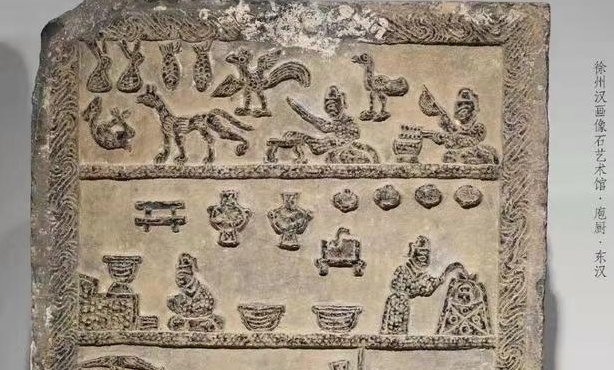 徐州汉画像石艺术馆·庖厨·东汉